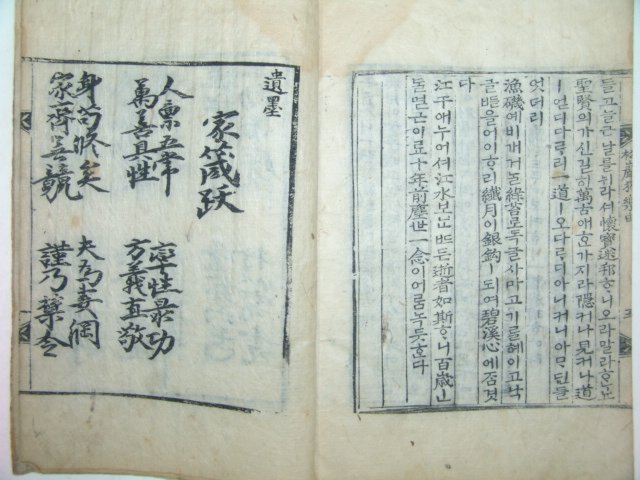 들고글른날를뉘라셔懷寶迷邦ᄒᆞ니오라말라ᄒᆞᄂᆞ뇨
聖賢의가신길히萬古애ᄒᆞᆫ가지라隱커나見커나道
ㅣ언디다ᄅᆞ리一道ㅣ오다ᄅᆞ디아니커니아ᄆᆞᄃᆡᆫ들
엇더리
漁磯예비개거ᄂᆞᆯ綠苔로독글사마고기를헤이고낙
글ᄠᅳᆮ을어이ᄒᆞ리纖月이銀鉤ㅣ되여碧溪心에ᄌᆞᆷ겻
다
江干애누어셔江水보ᄂᆞᆫᄠᅳ든逝者如斯ᄒᆞ니百歲ㄴ
ᄃᆞᆯ멷근이료十年前塵世一念이어ᄅᆞᆷ녹ᄃᆞᆺᄒᆞ다
遺墨
家箴跋
人稟五常 性最功
萬善具性 方義直敬
身苟修矣 夫為妻綱
家齊善競 謹乃令